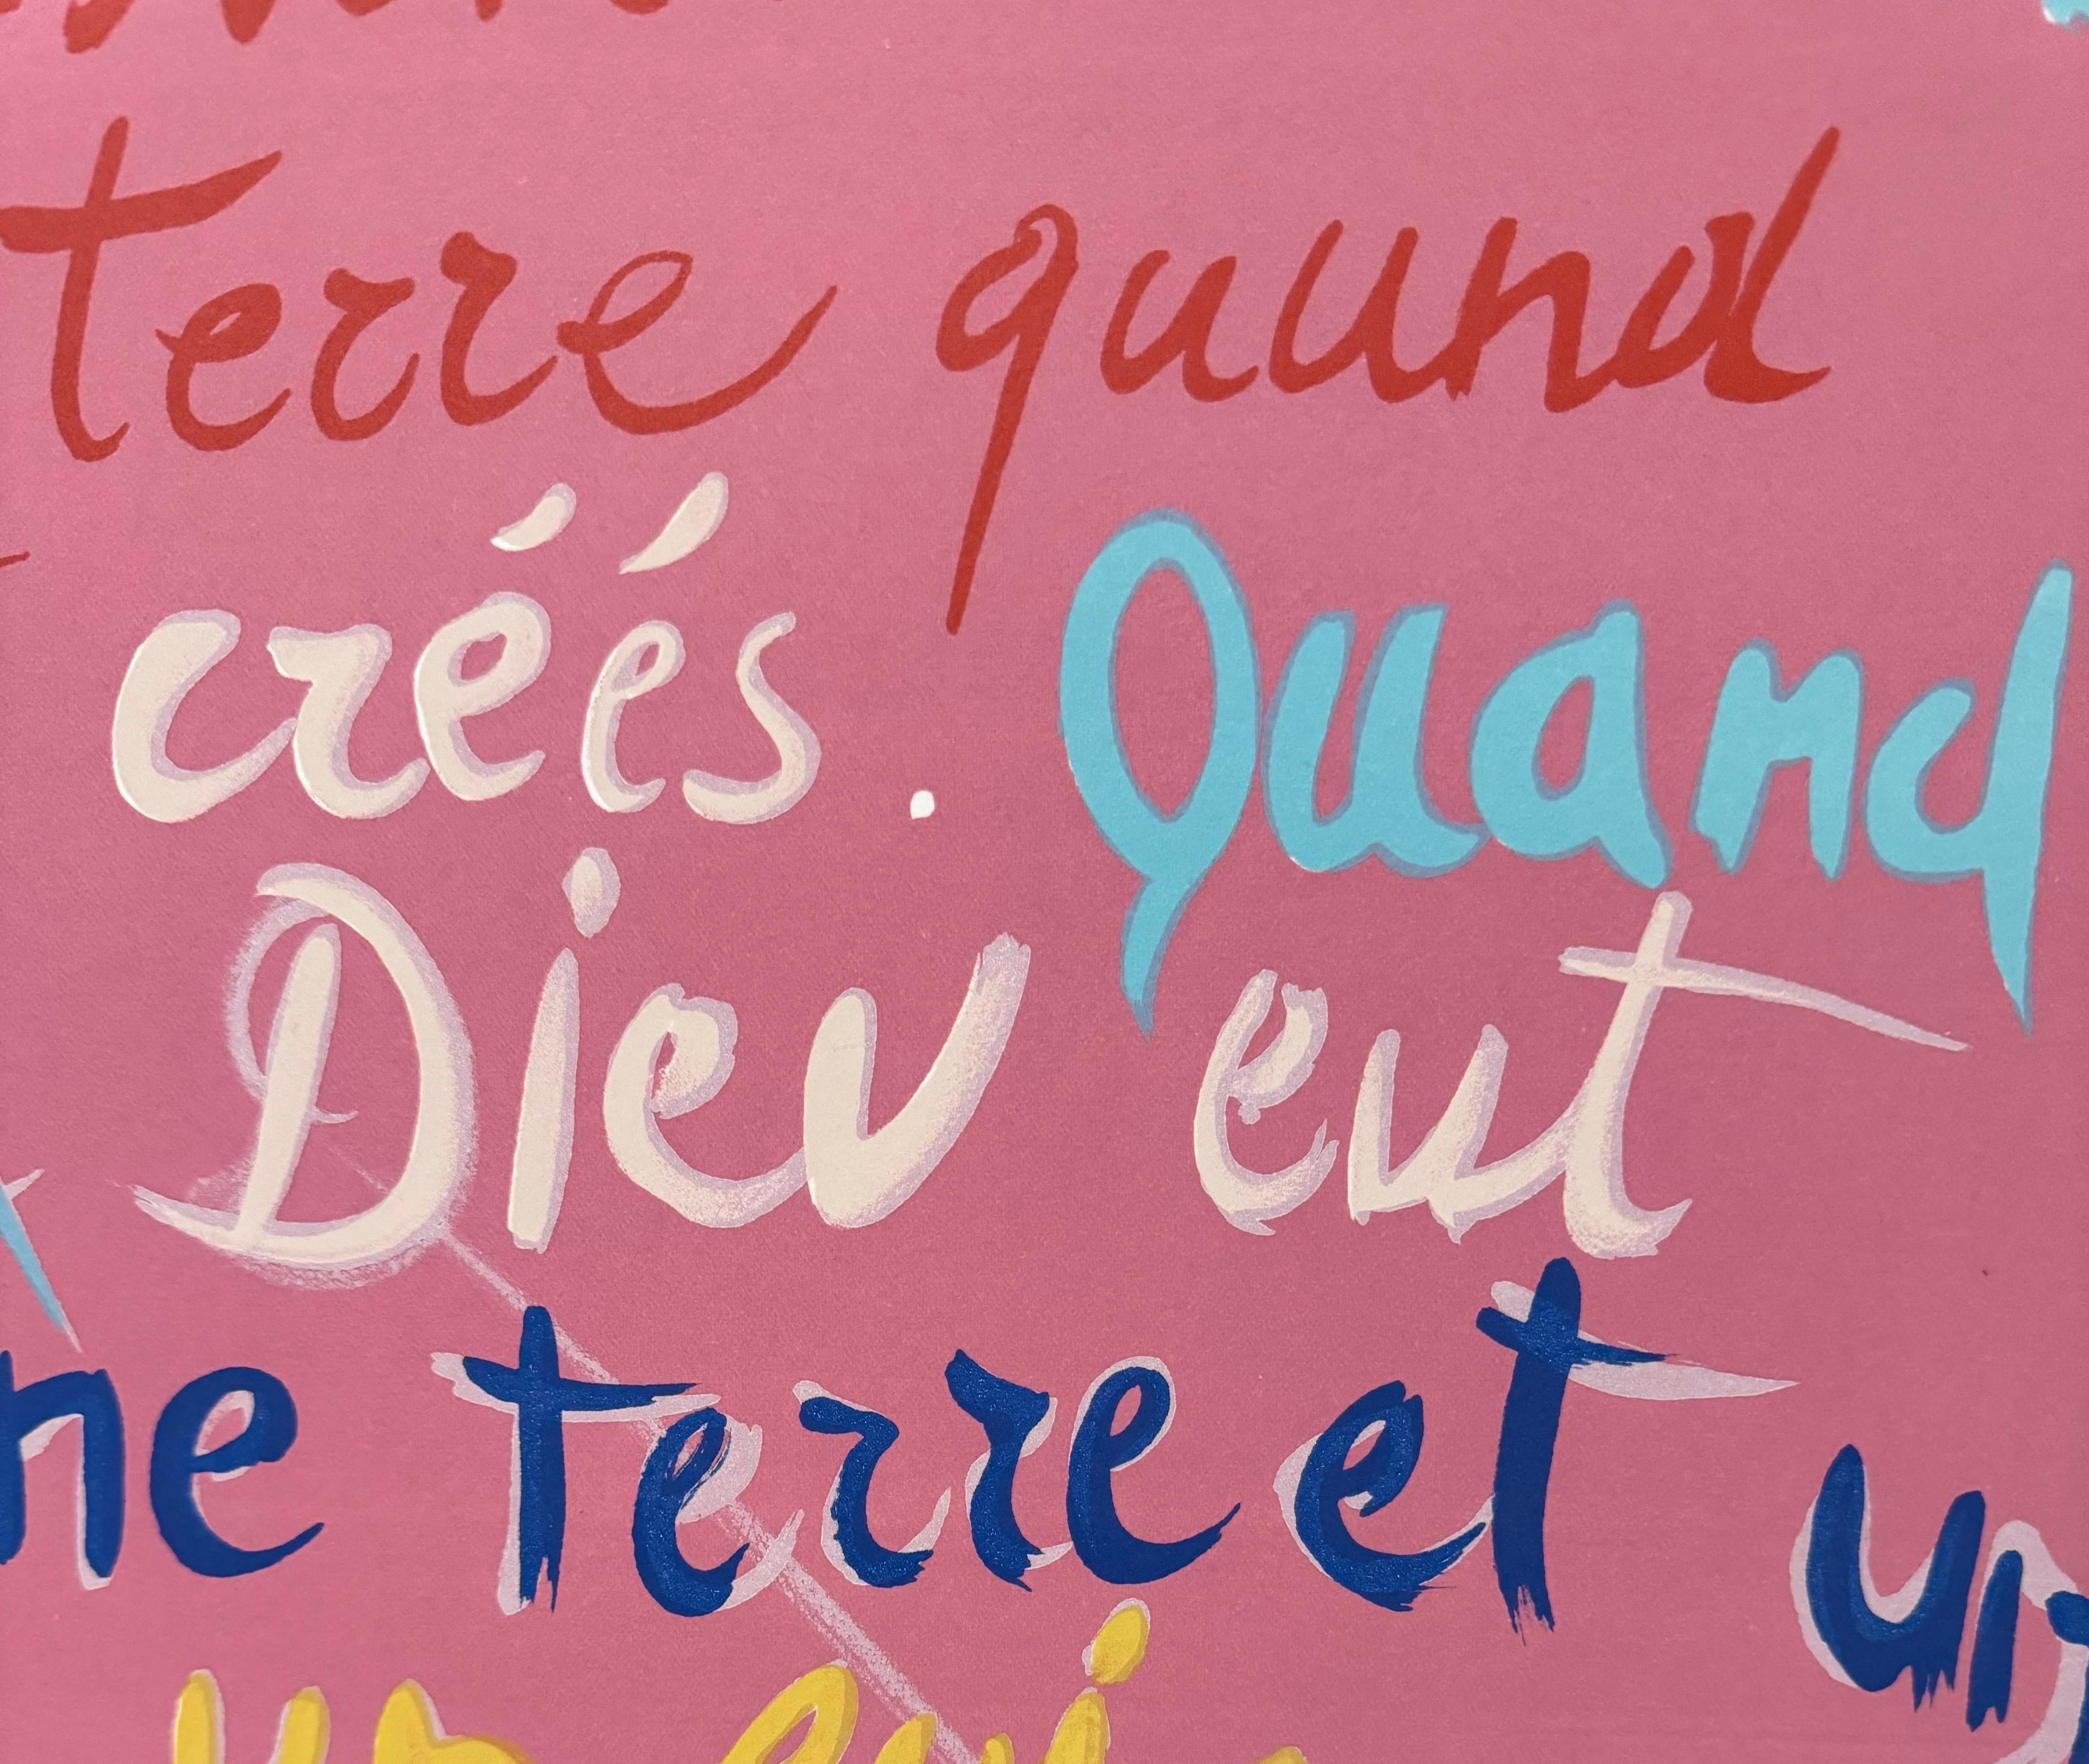 terre quand
créés. Quand
Dieu eut
ne terre et un
un qui